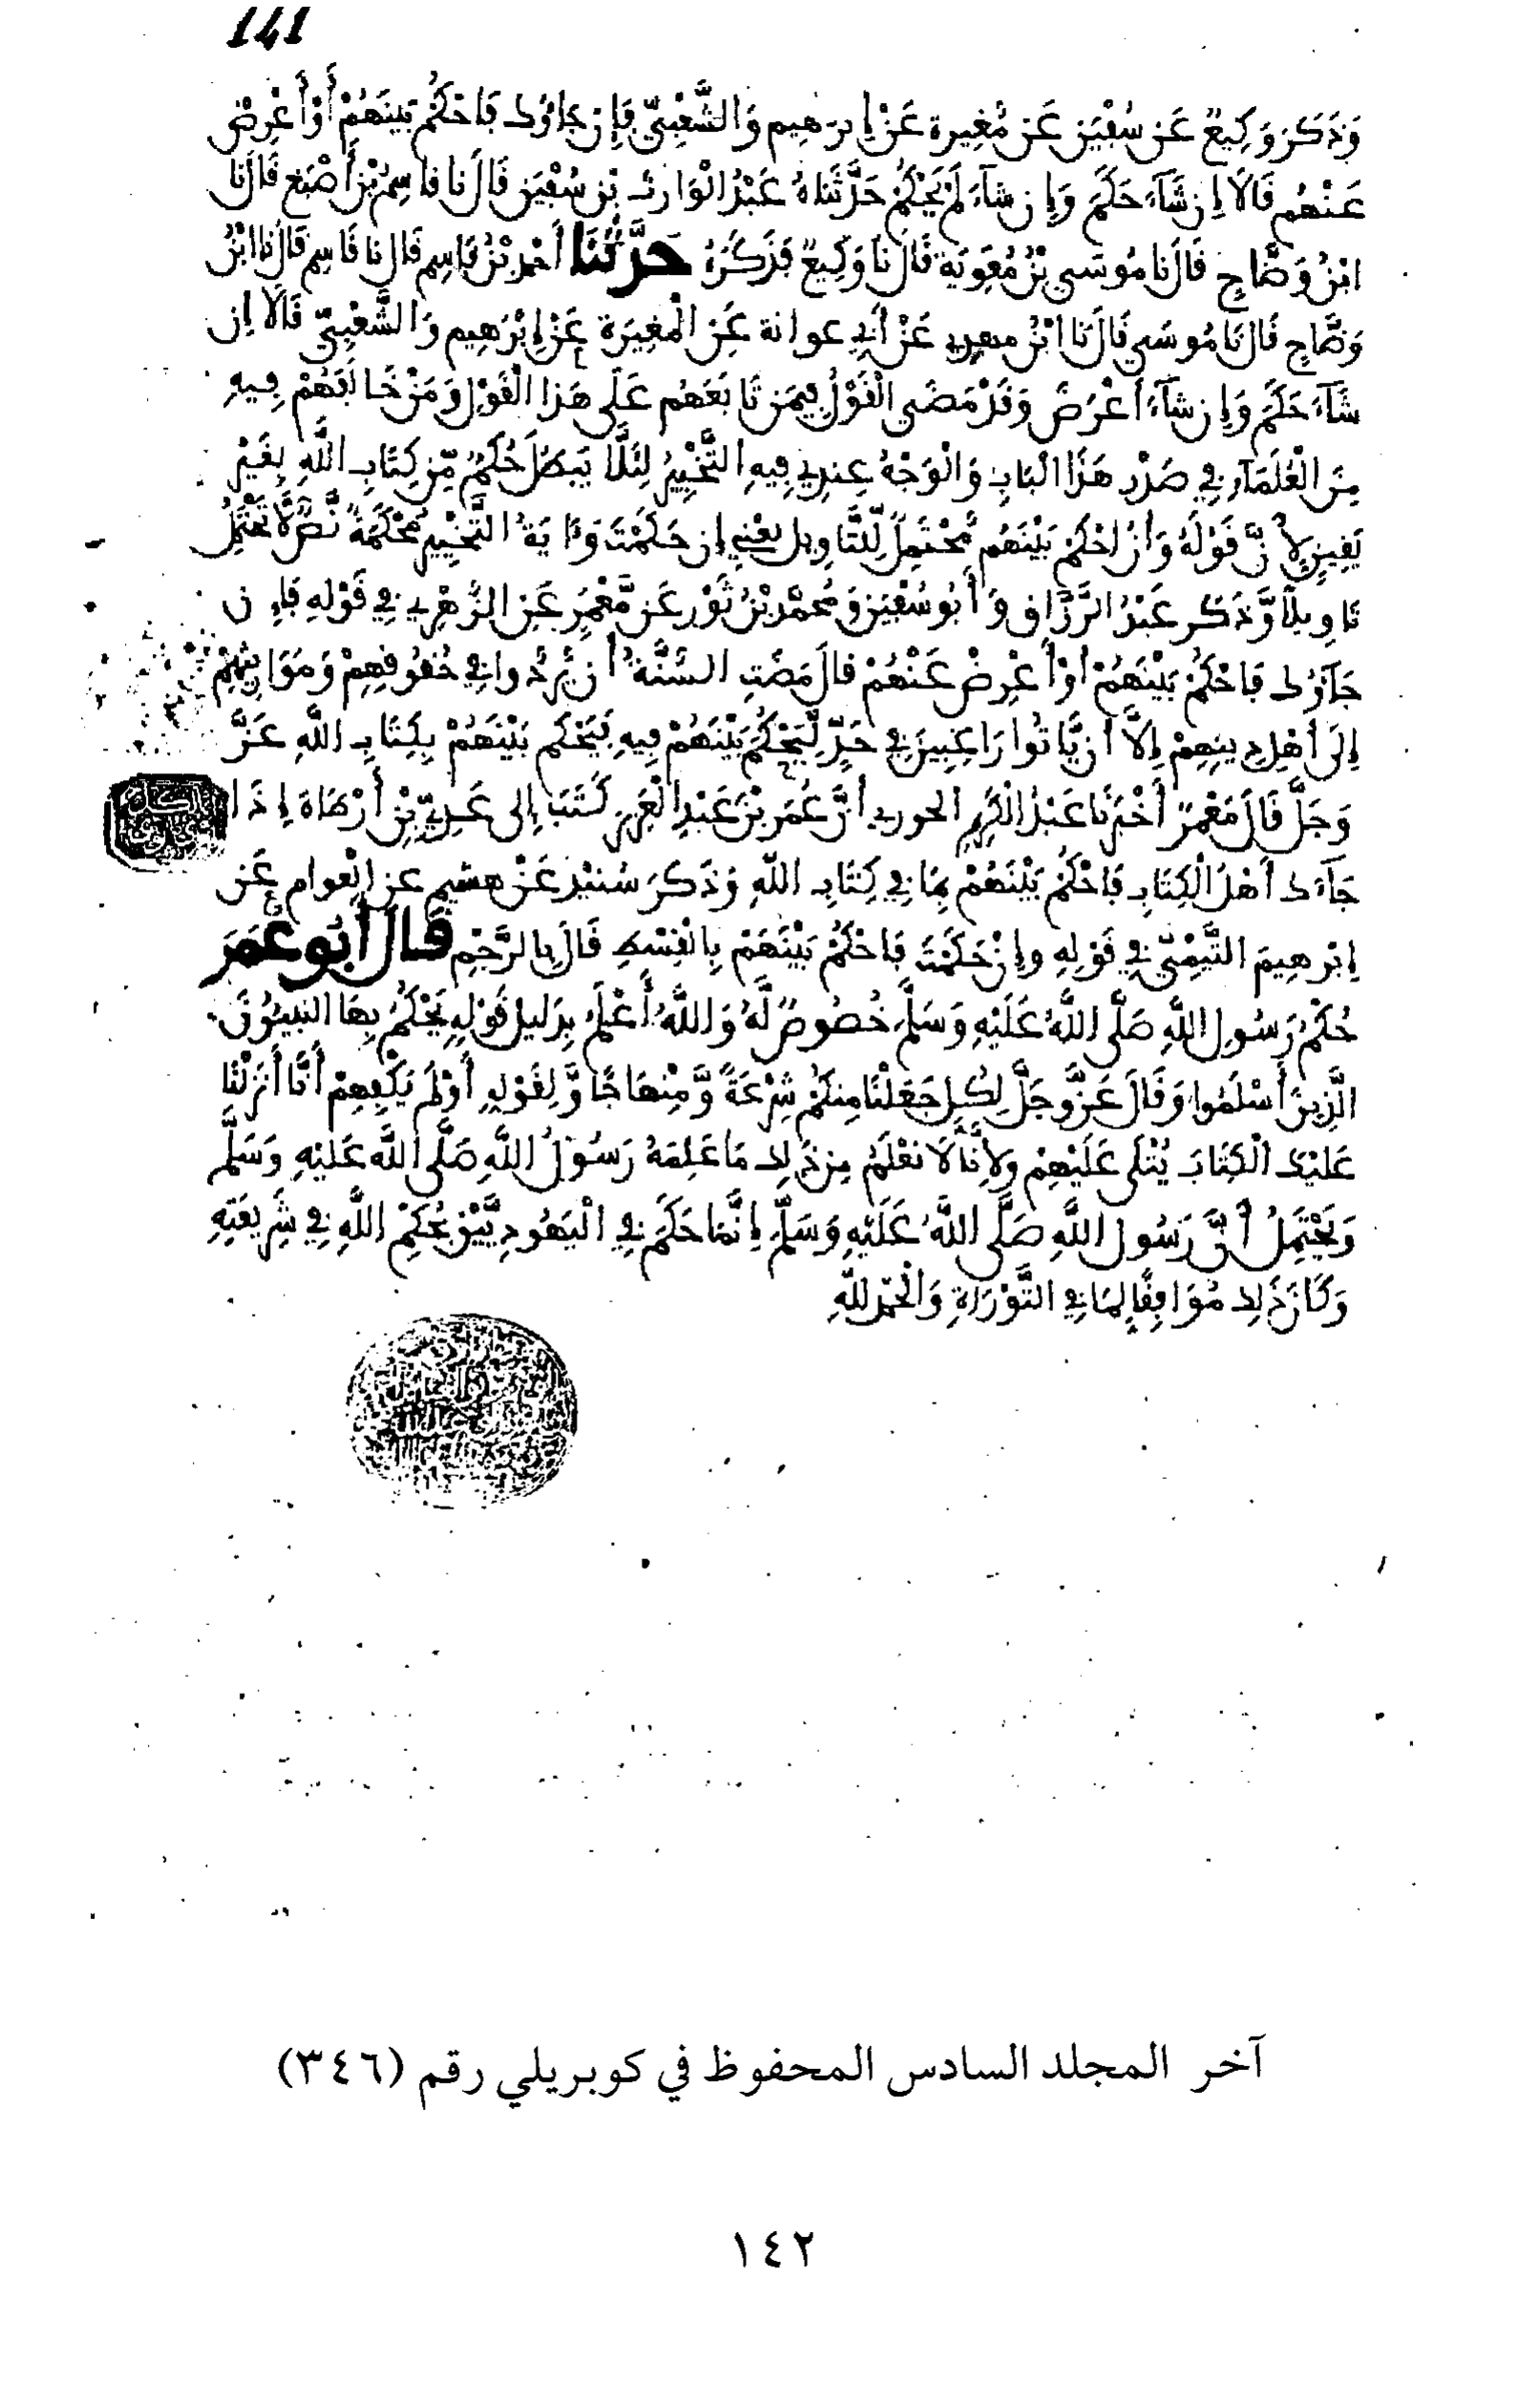 141
وَذَكَرَ وَكِيعٌ عَن سُفْيَن عَن مُّغِيرة عَنْ إبرَهِيم وَالشَّعْبِيِّ فَإِن جَاؤُكَ فَاحْكُم بَينَهُمْ أَوْ أَعْرِضْ
عَنْهُم قَالَا إِن شَآءَ حَكَمَ وَإِن شَآءَ لَمْ يَحْكُمْ حَدَّثَنَاهُ عَبْدُ الْوَارِث بْن سُفْيَن قَالَ نَا قَاسِمُ بْنُ أَصْبَغ قَالَ نَا
ابْنُ وَضَّاحٍ قَالَ نَا مُوسَى بْنُ مُعَوِيَة قَالَ نَا وَكِيعٌ فَذَكَرَهُ حَدَّثَنَا أَحْمَد بْنُ قَاسِم قَالَ نَا قَاسِم قَالَ نَا ابْنُ
وَضَّاحٍ قَالَ نَا مُوسَى قَالَ نَا ابْنُ مهدي عَنْ أَبِي عوانة عَنِ الْمُغِيَرَة عَنْ إِبْرَهِيم وَالشَّعْبِيِّ قَالَا إِن
شَآءَ حَكَمَ وَإِن شَآءَ أَعْرَضَ وَقَدْ مَضَى الْقَوْلُ فِيمَن تَابَعَهُم عَلَى هَذَا الْقَوْلِ وَمَنْ خَالَفَهُمْ فِيهِ
مِنَ الْعُلَمَآءِ فِي صَدْرِ هَذَا الْبَابِ وَالْوَجْهُ عِنْدِي فِيهِ التَّخْيِيرُ لِئَلَّا يَبْطُلَ حُكْمٌ مِّن كِتَابِ اللَّهِ بِغَيْرِ
يَقِينٍ لِأَنَّ قَوْلَهُ وَأَنِ احْكُمْ بَيْنَهُم مُّحْتَمِلٌ لِّلتَّاوِيل يعْنِي إِن حَكَمْتَ وَءَايَةُ التَّخْيِيرِ مُحْكَمَةٌ نَّصٌّ لَّا تَحْتَمِلُ
تَاوِيلًا وَّذَكَر عَبْدُ الرَّزَّاق وَأَبُو سُفْيَن وَمُحمَّد بْنُ ثَوْر عَن مَّعْمَرٍ عَنِ الزُّهْرِي فِي قَوْلِهِ فَإِن
جَآؤُكَ فَاحْكُمْ بَيْنَهُمْ أَوْ أَعْرِضْ عَنْهُمْ قَالَ مَضَتِ السُّنَّةُ أَن يُّرَدُّوا فِي حُقُوقِهِمْ وَمَوَارِيثِهِمْ
إِلَى أَهْلِ دِينِهِمْ إِلَّا أَن يَّاتُوا رَاغِبِينَ فِي حَدٍّ لِّيَحْكُمَ بَيْنَهُمْ فِيهِ فَيَحْكُم بَيْنَهُمْ بِكِتَابِ اللَّهِ عَزَّ
وَجَلَّ قَالَ مَعْمَرٌ أَخْبَرَنَا عَبْدُ الْكَرِيمِ الحوري أَنَّ عُمَر بْنَ عَبْدِ الْعَزِيزِ كَتَبَ إِلَى عَدِيِّ بْنِ أَرْطَاةَ إِذَا
جَآءَكَ أَهْلُ الْكِتَابِ فَاحْكُمْ بَيْنَهُمْ بِمَا فِي كِتَابِ اللَّهِ وَذَكَرَ سُنَيْد عَنْ هشيم عَنِ الْعوام عَن
إِبْرهِيمَ التَّيْمِيِّ فِي قَوْلِهِ وإِنْ حَكَمْتَ فَاحْكُمْ بَيْنَهُمْ بِالْقِسْطِ قَالَ بِالرَّجْمِ قَالَ أَبُو عُمَرَ
حُكْمُ رَسُولِ اللَّهِ صَلَّى اللَّهُ عَلَيْهِ وَسَلَّمَ خُصُوصٌ لَّهُ وَاللَّهُ أَعْلَمُ بِدَلِيلِ قَوْلِهِ يَحْكُمُ بِهَا النَّبِيُّونَ
الَّذِينَ أَسْلَمُوا وَقَالَ عَزَّ وَجَلَّ لِكُلٍّ جَعَلْنَا مِنكُمْ شِرْعَةً وَّمِنْهَاجًا وَّلِقَوْلِهِ أَوَلَمْ يَكْفِهِمْ أَنَّا أَنزَلْنَا
عَلَيْكَ الْكِتَابَ يُتْلَى عَلَيْهِمْ وَلِأَنَّا لَا نَعْلَمُ مِن ذَلِكَ مَا عَلِمَهُ رَسُولُ اللَّهِ صَلَّى اللَّه عَلَيْهِ وَسَلَّمَ
وَيَحْتَمِلُ أَنَّ رَسُولَ اللَّهِ صَلَّى اللَّهُ عَلَيْهِ وَسَلَّمَ إِنَّمَا حَكَمَ فِي الْيَهُودِيَّيْنِ بِحُكْمِ اللَّهِ فِي شَرِيعَتِهِ
وَكَانَ ذَلِكَ مُوَافِقًا لِمَا فِي التَّوْرَاةِ وَالْحَمْدُ لِلَّهِ
آخر المجلد السادس المحفوظ في كوبريلي رقم (٣٤٦)
١٤٢